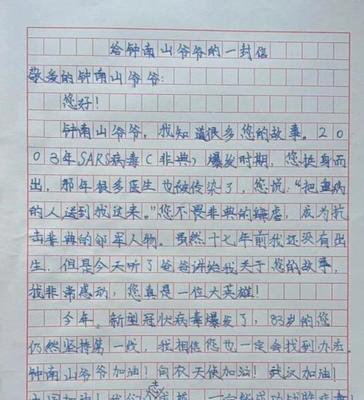 给钟南山爷爷的一封信
敬爱的钟南山爷爷：
您好！
钟南山爷爷，我知道很多您的故事。20
03年SARS病毒（非典）爆发时期，您挺身而
出，那年很多医生也被传染了，您说：“把重病
的人送到我这来。”您不畏非典的肆虐，成为抗
击非典的领军人物。虽然十七年前我还没有出
生，但是今天听了爸爸讲给我关于您的故事，
我非常感动，您真是一位大英雄！
今年，新型冠状病毒爆发了，83岁的您
仍然坚持第一线，我相信您也一定会找到办法。
钟南山爷爷加油！白衣天使加油！武汉加油！
中国加油！我们